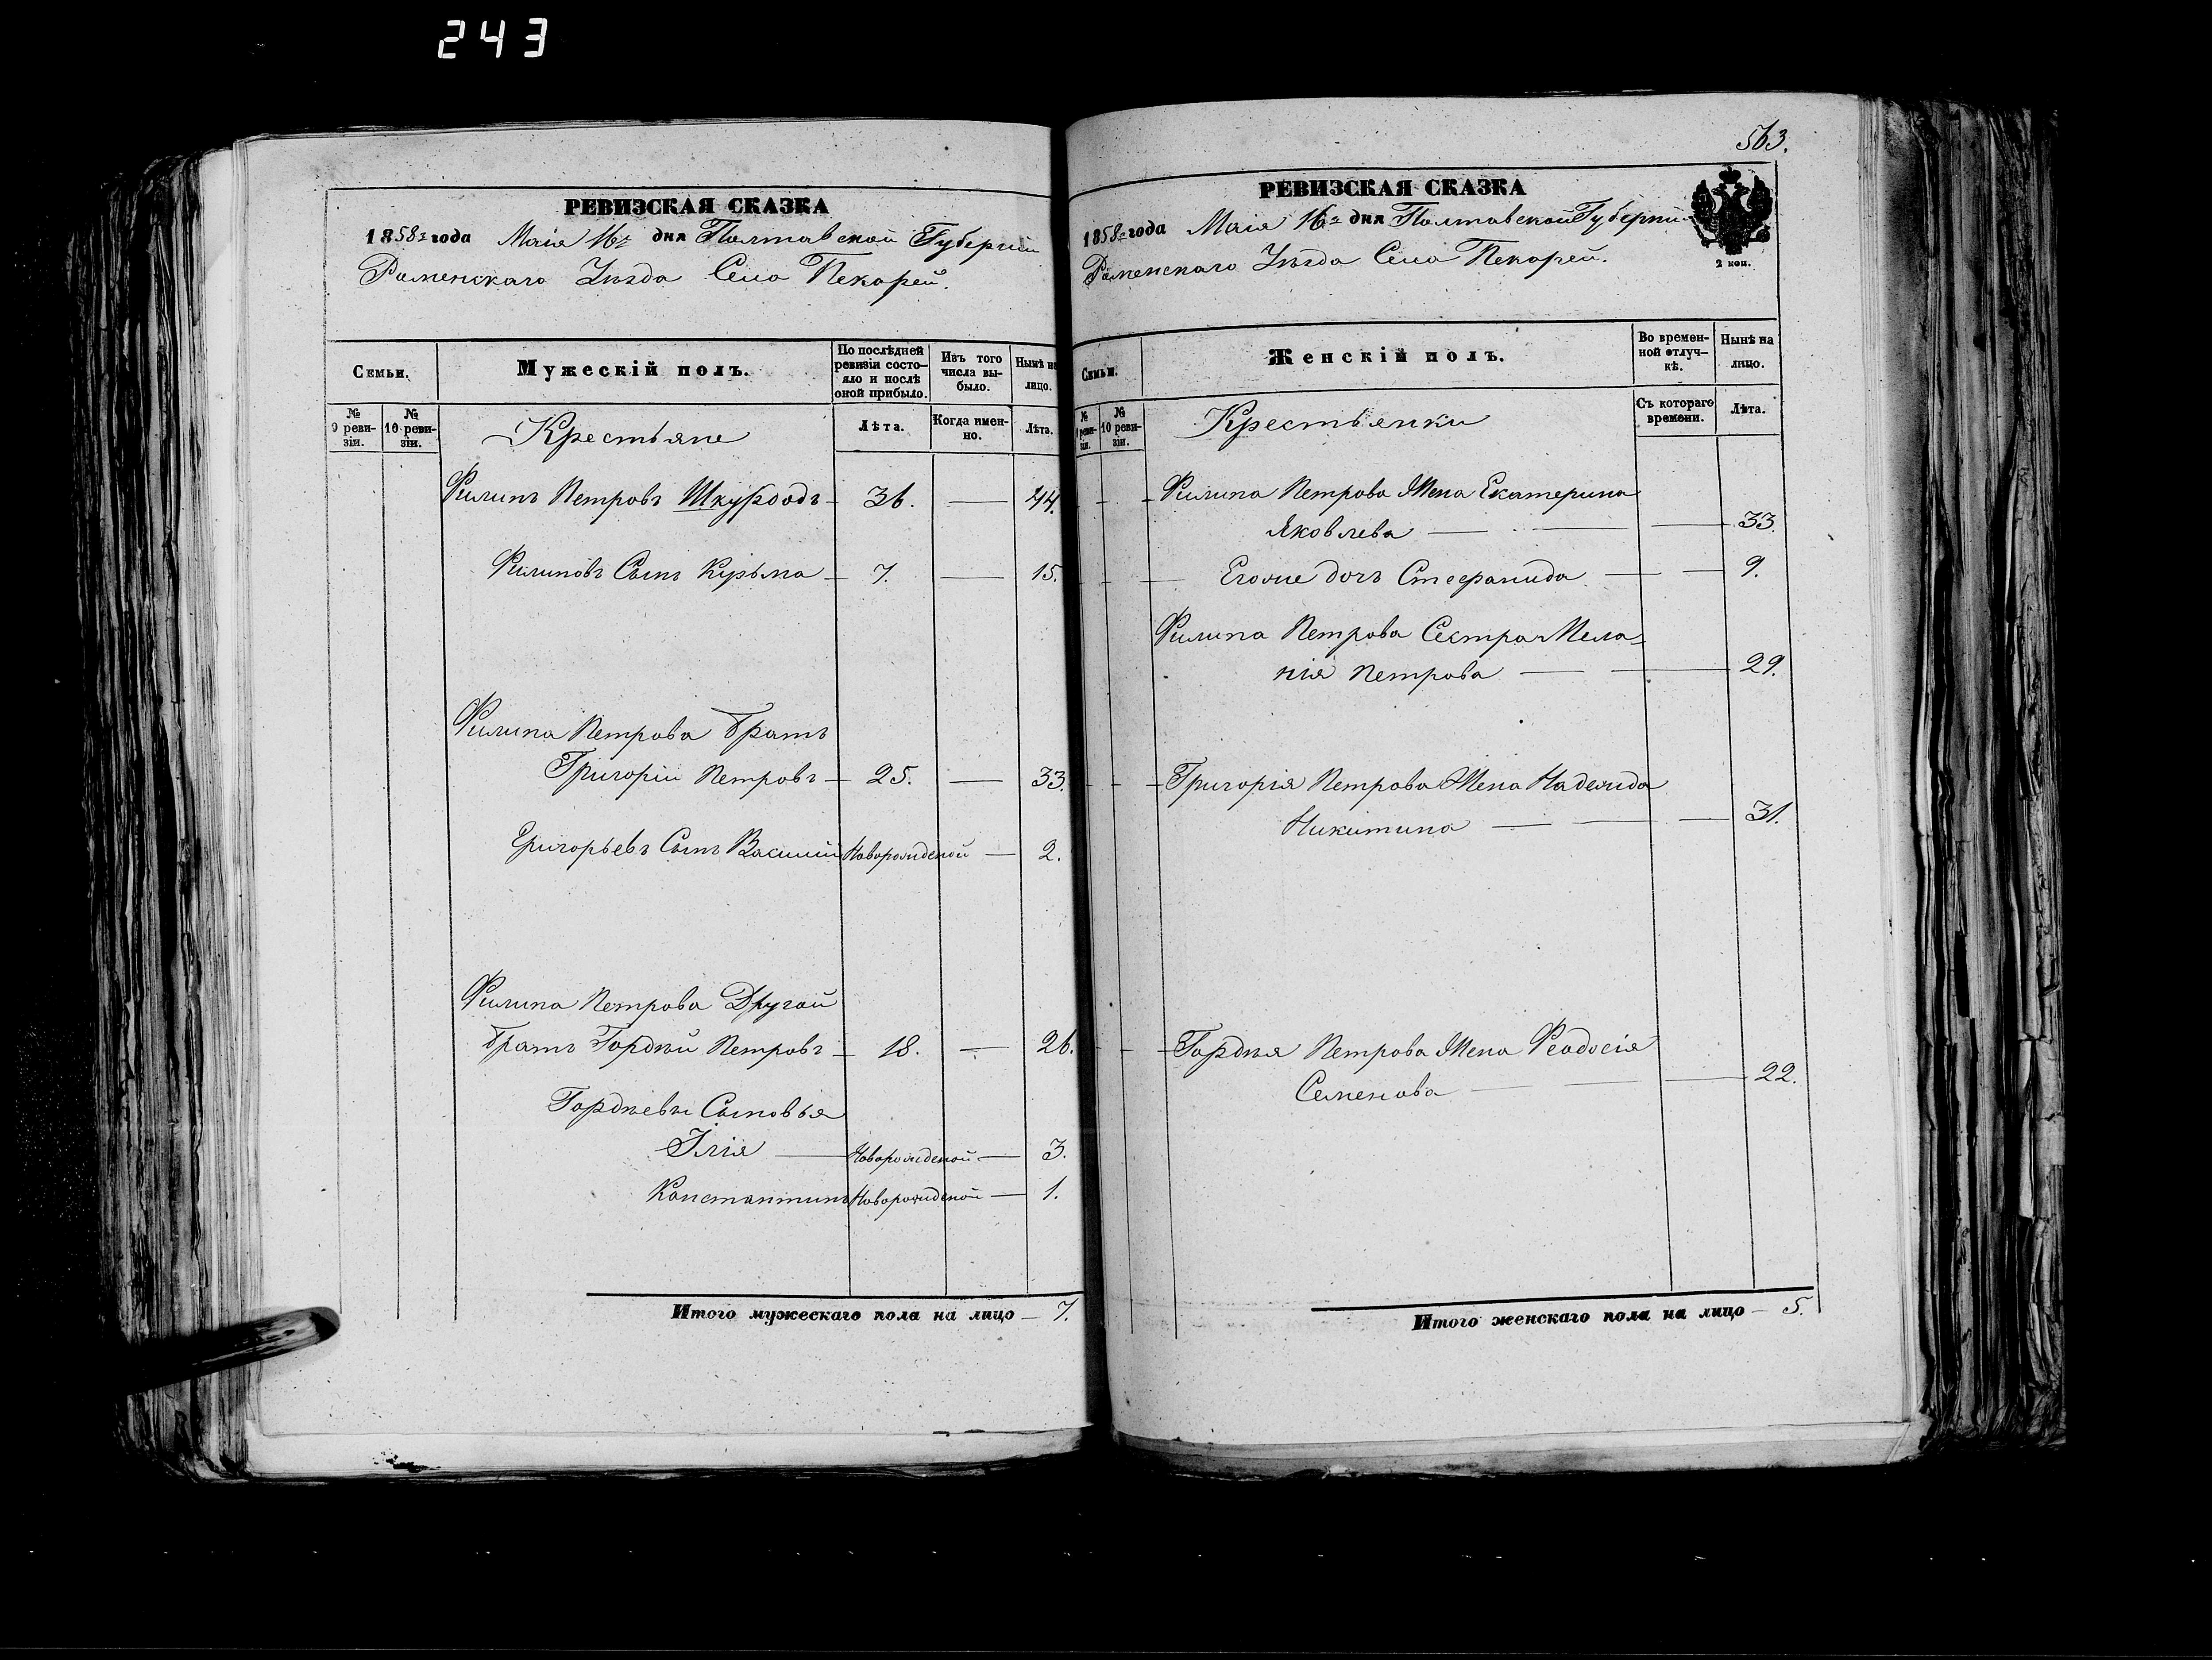 243
РЕВИЗСКАЯ СКАЗКА
1858го года Маія 16го дня Полтавской Губерніи
Роменскаго Уѣзда Села Пекарей.
Семьи.
Мужескій полъ.
По послѣдней ревизіи состояло и послѣ оной прибыло.
Изъ того числа выбыло.
Нынѣ на лицо.
№ 9 ревизіи.
№ 10 ревизіи.
Крестьяне
Лѣта.
Когда именно.
Лѣта.
Филипъ Петровъ — 36. — 44.
Филиповъ Сынъ Кузьма — 7. — 15.
Филипа Петрова братъ
Григорій Петровъ — 25. — 33.
Григорьевъ Сынъ Василій Новорожденой — 2.
Филипа Петрова Другой
братъ Гордѣй Петровъ — 18. — 26.
Гордѣевы Сыновья
Ілія — Новорожденой — 3.
Константинъ Новорожденой — 1.
Итого мужескаго пола на лицо — 7.
563.
РЕВИЗСКАЯ СКАЗКА
1858го года Маія 16го дня Полтавской Губерніи
Роменскаго Уѣзда Села Пекарей.
2 коп.
Семьи.
Женскій полъ.
Во временной отлучкѣ.
Нынѣ на лицо.
№ 9 ревизіи.
№ 10 ревизіи.
Крестьянки
Съ котораго времени.
Лѣта.
Филипа Петрова Жена Екатерина
Яковлева — 33.
Егоже дочь Стефанида — 9.
Филипа Петрова Сестра Мела-
нія Петрова — 29.
Григорія Петрова Жена Надежда
Никитина — 31.
Гордѣя Петрова Жена Феодосія
Семенова — 22.
Итого женскаго пола на лицо — 5.